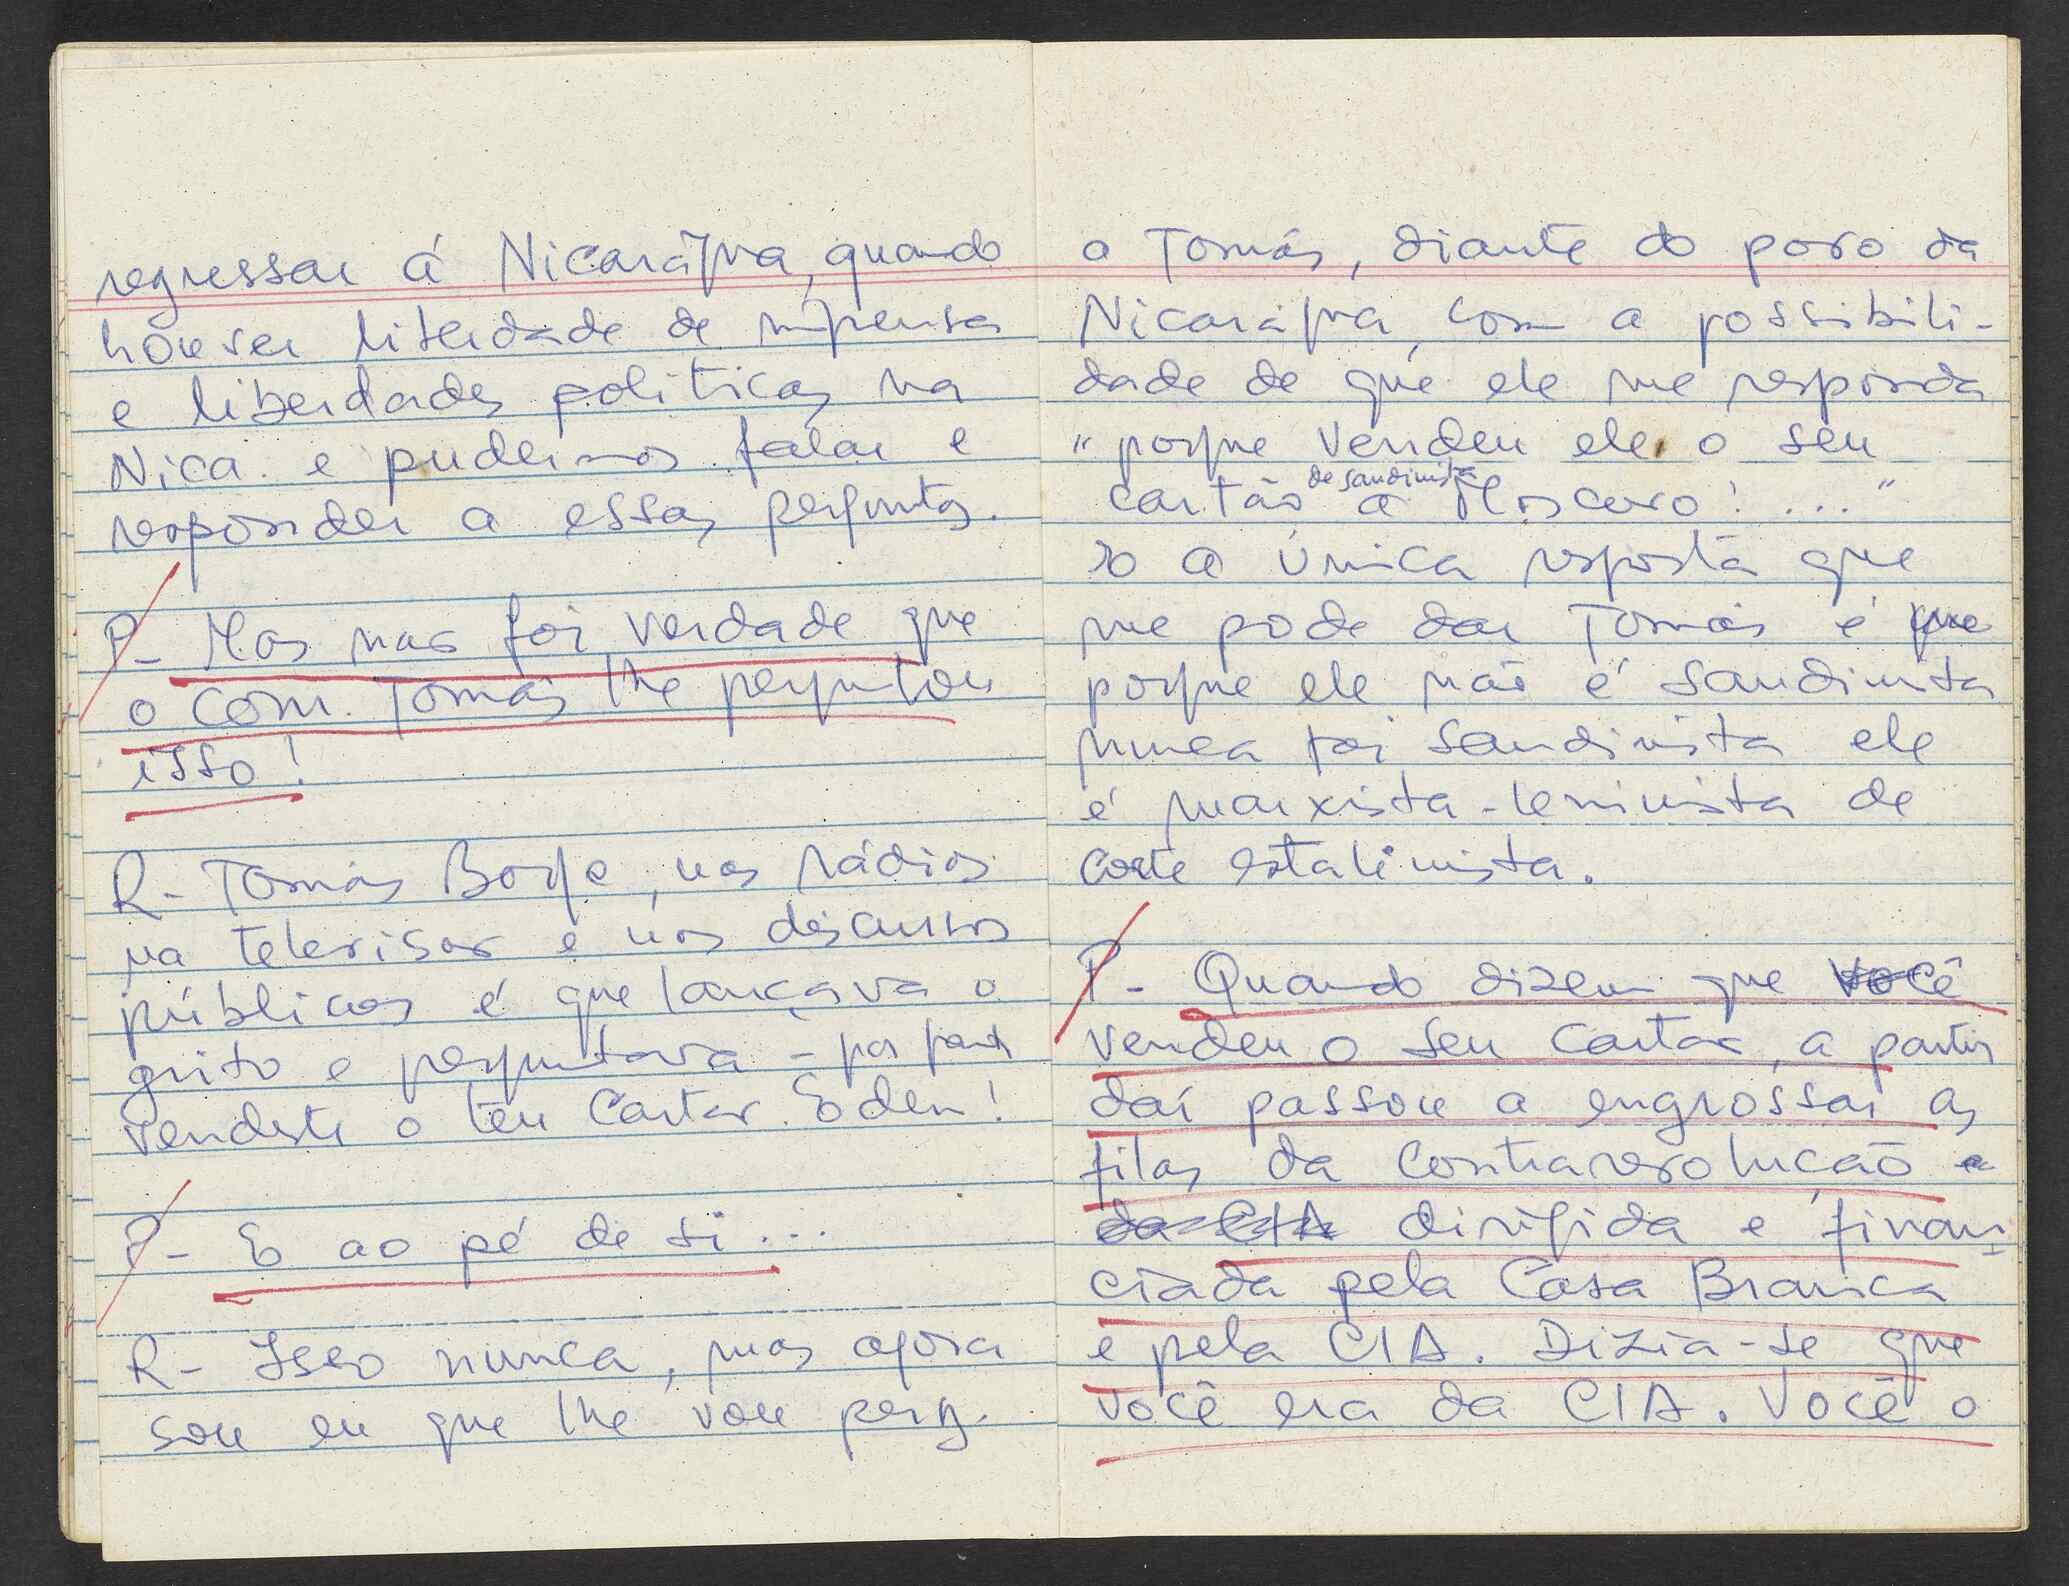 regressar á Nicarágua, quando
houver liberdade de imprensa
e liberdades politicas na
Nica. e pudermos falar e
responder a essas perguntas.
P- Mas nao foi verdade que
o com. Tomás lhe perguntou
isso!
R- Tomás Borge, nas rádios
na televisao e nos discursos
públicos é que lançava o
grito e perguntava - por
vendeste o teu Cartao Eden!
P- E ao pé de si...
R- Isso nunca, mas agora
sou eu que lhe vou perg.
o Tomás, diante do povo da
Nicarágua, com a possibili-
dade de que ele me responda
"porque vendeu ele o seu
cartão de sandinista a Moscovo! ..."
E a única resposta que
me pode dar Tomás é que
porque ele não é sandinista
nunca foi sandinista ele
é marxista-leninista de
corte estalinista.
P- Quando dizem que você
vendeu o seu Cartao, a partir
daí passou a engrossar as
filas da contrarevolução e
da CIA dirigida e finan-
ciada pela Casa Branca
e pela CIA. Dizia-se que
você era da CIA. Você o